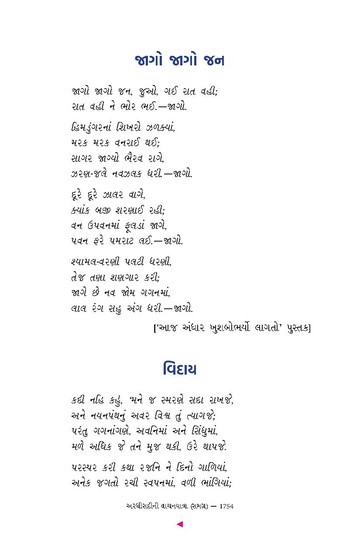 જાગો જાગો જન
જાગો જાગો જન, જુઓ, ગઈ રાત વહી;
રાત વહી ને ભોર ભઈ.—જાગો.
હિમડુંગરનાં શિખરો ઝળક્યાં,
મરક મરક વનરાઈ થઈ;
સાગર જાગ્યો ભૈરવ રાગે,
ઝરણ-જલે નવઝલક ધરી.—જાગો.
દૂરે દૂરે ઝાલર વાગે,
ક્યાંક બજી શરણાઈ રહી;
વન ઉપવનમાં ફૂલડાં જાગે,
પવન ફરે પમરાટ લઈ.—જાગો.
શ્યામલ-વરણી પલટી ધરણી,
તેજ તણા શણગાર કરી;
જાગે છે નવ જોમ ગગનમાં,
લાલ રંગ સહુ અંગ ધરી.—જાગો.
['આજ અંધાર ખુશબોભર્યો લાગતો' પુસ્તક]
વિદાય
કદી નહિ કહું, 'મને જ સ્મરણે સદા રાખજે,
અને નયનપંથનું અવર વિશ્વ તું ત્યાગજે;
પરંતુ ગગનાંગણે, અવનિમાં અને સિંધુમાં,
મળે અધિક જે તને મુજ થકી, ઉરે થાપજે.
પરસ્પર કરી કથા રજનિ ને દિનો ગાળિયાં,
અનેક જગતો રચી સ્વપનમાં, વળી ભાંગિયાં;
અરધીસદીની વાચનયાત્રા (સમગ્ર) — 1754